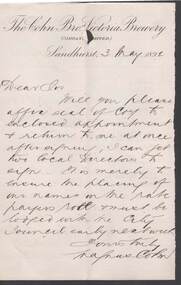 The Cohn Bros Victoria Brewery
Company Limited
Sandhurst, 3 May 189
Dear Sir
Will you please
affix seal of Coy to
enclosed appointment
& return to me at once
after signing, I can get
two local Directors to
sign. It is merely to
ensure the placing of
our names on the rate
payers roll & must be
lodged with the City
Council early next week
Yours truly
Magnus Cohn